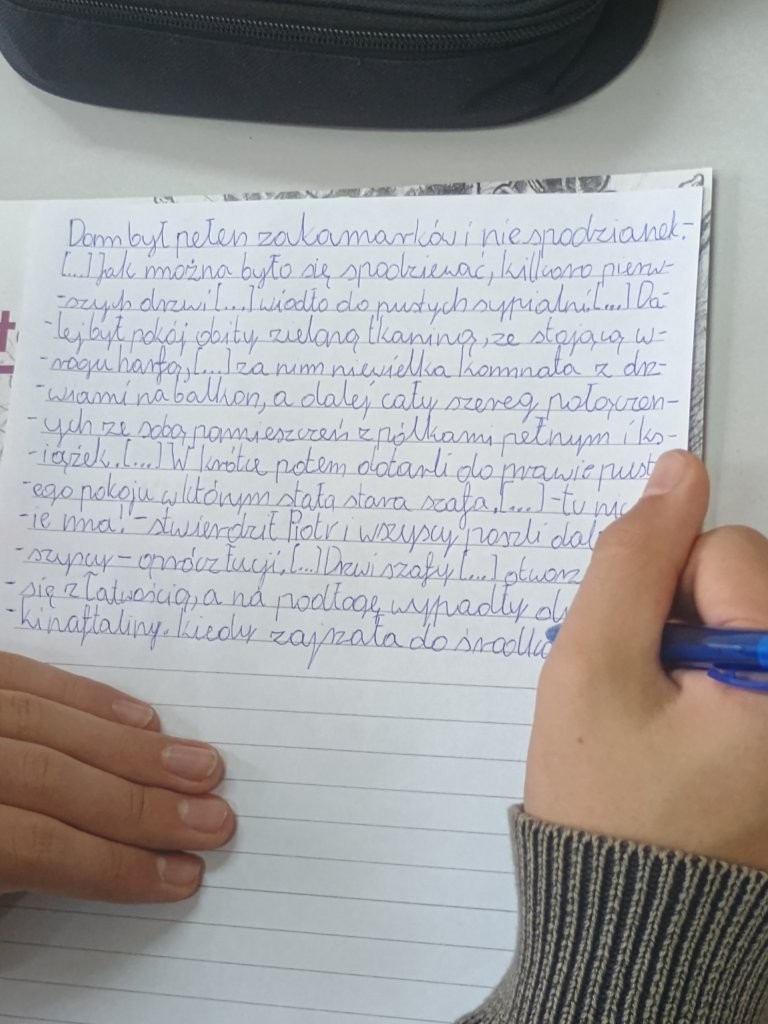 Dom był pełen zakamarków i niespodzianek.-
[...] Jak można było się spodziewać, kilkoro pierw-
-szych drzwi [...] wiodło do pustych sypialni. [...] Da-
-lej był pokój obity zieloną tkaniną, ze stojącą w-
-rogu harfą, [...] za nim niewielka komnata z drz-
-wiami na balkon, a dalej cały szereg połączon-
-ych ze sobą pomieszczeń z półkami pełnym i ks-
-iążek. [...] W krótce potem dotarli do prawie pust
-ego pokoju w którym stała stara szafa. [...] -tu
-ie ma! -stwierdził Piotr i wszyscy poszli
-szyscy - oprócz Łucji. [...] Drzwi szafy [...]
-się z łatwością, a na podłogę wypadły
-ki naftaliny. kiedy zajrzała do